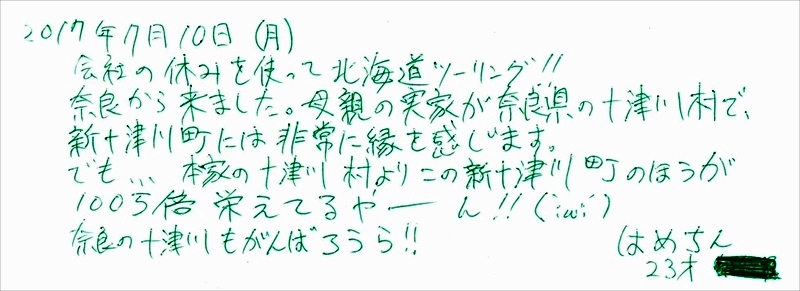 2017年7月10日(月)
会社の休みを使って北海道ツーリング!!
奈良から来ました。母親の実家が奈良県の十津川村で、
新十津川町には非常に縁を感じます。
でも... 本家の十津川村よりこの新十津川町のほうが
100万倍栄えてるやーん!!(;ω;)
奈良の十津川もがんばろうら!!
はめちん
23才